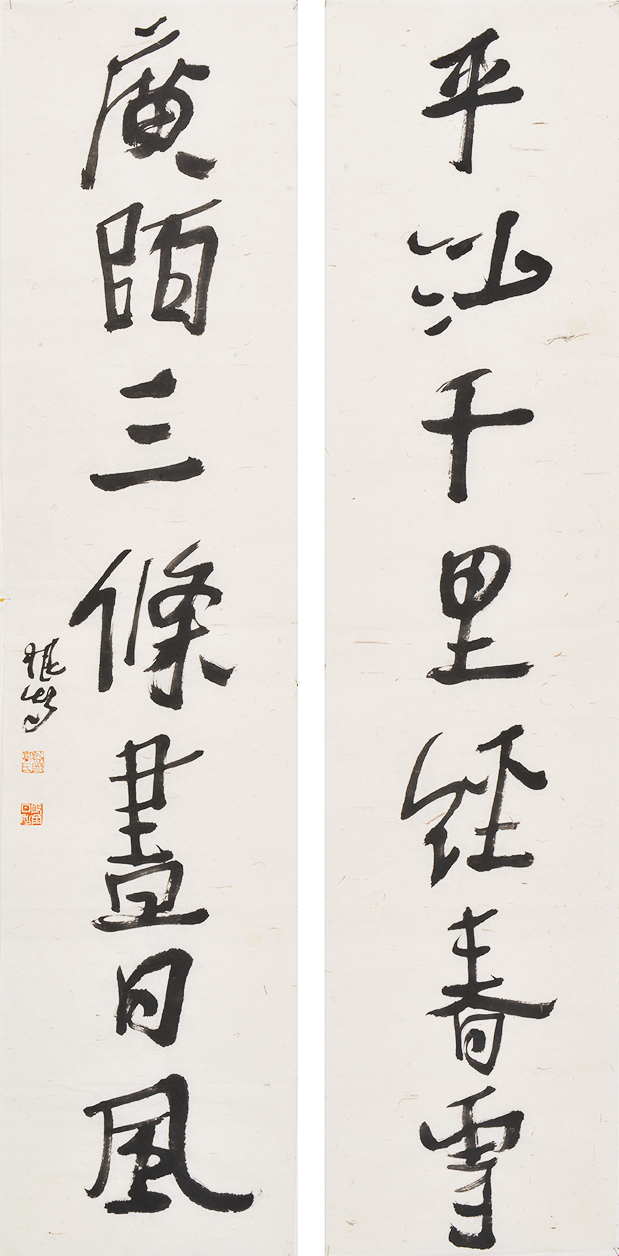 平沙千里經春雪
廣陌三條盡日風